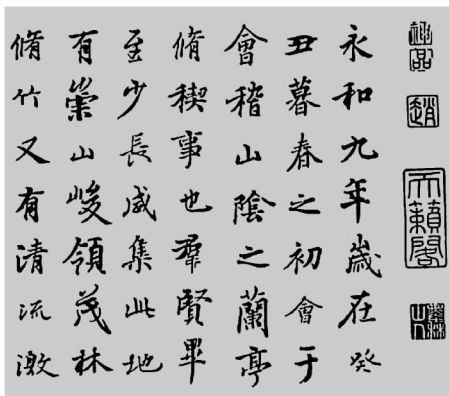 神品
趙
天籟閣
永和九年歲在癸
丑暮春之初會于
會稽山陰之蘭亭
脩稧事也羣賢畢
至少長咸集此地
有崇山峻領茂林
脩竹又有清流激